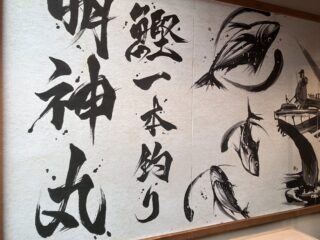 明神丸
鰹一本釣り